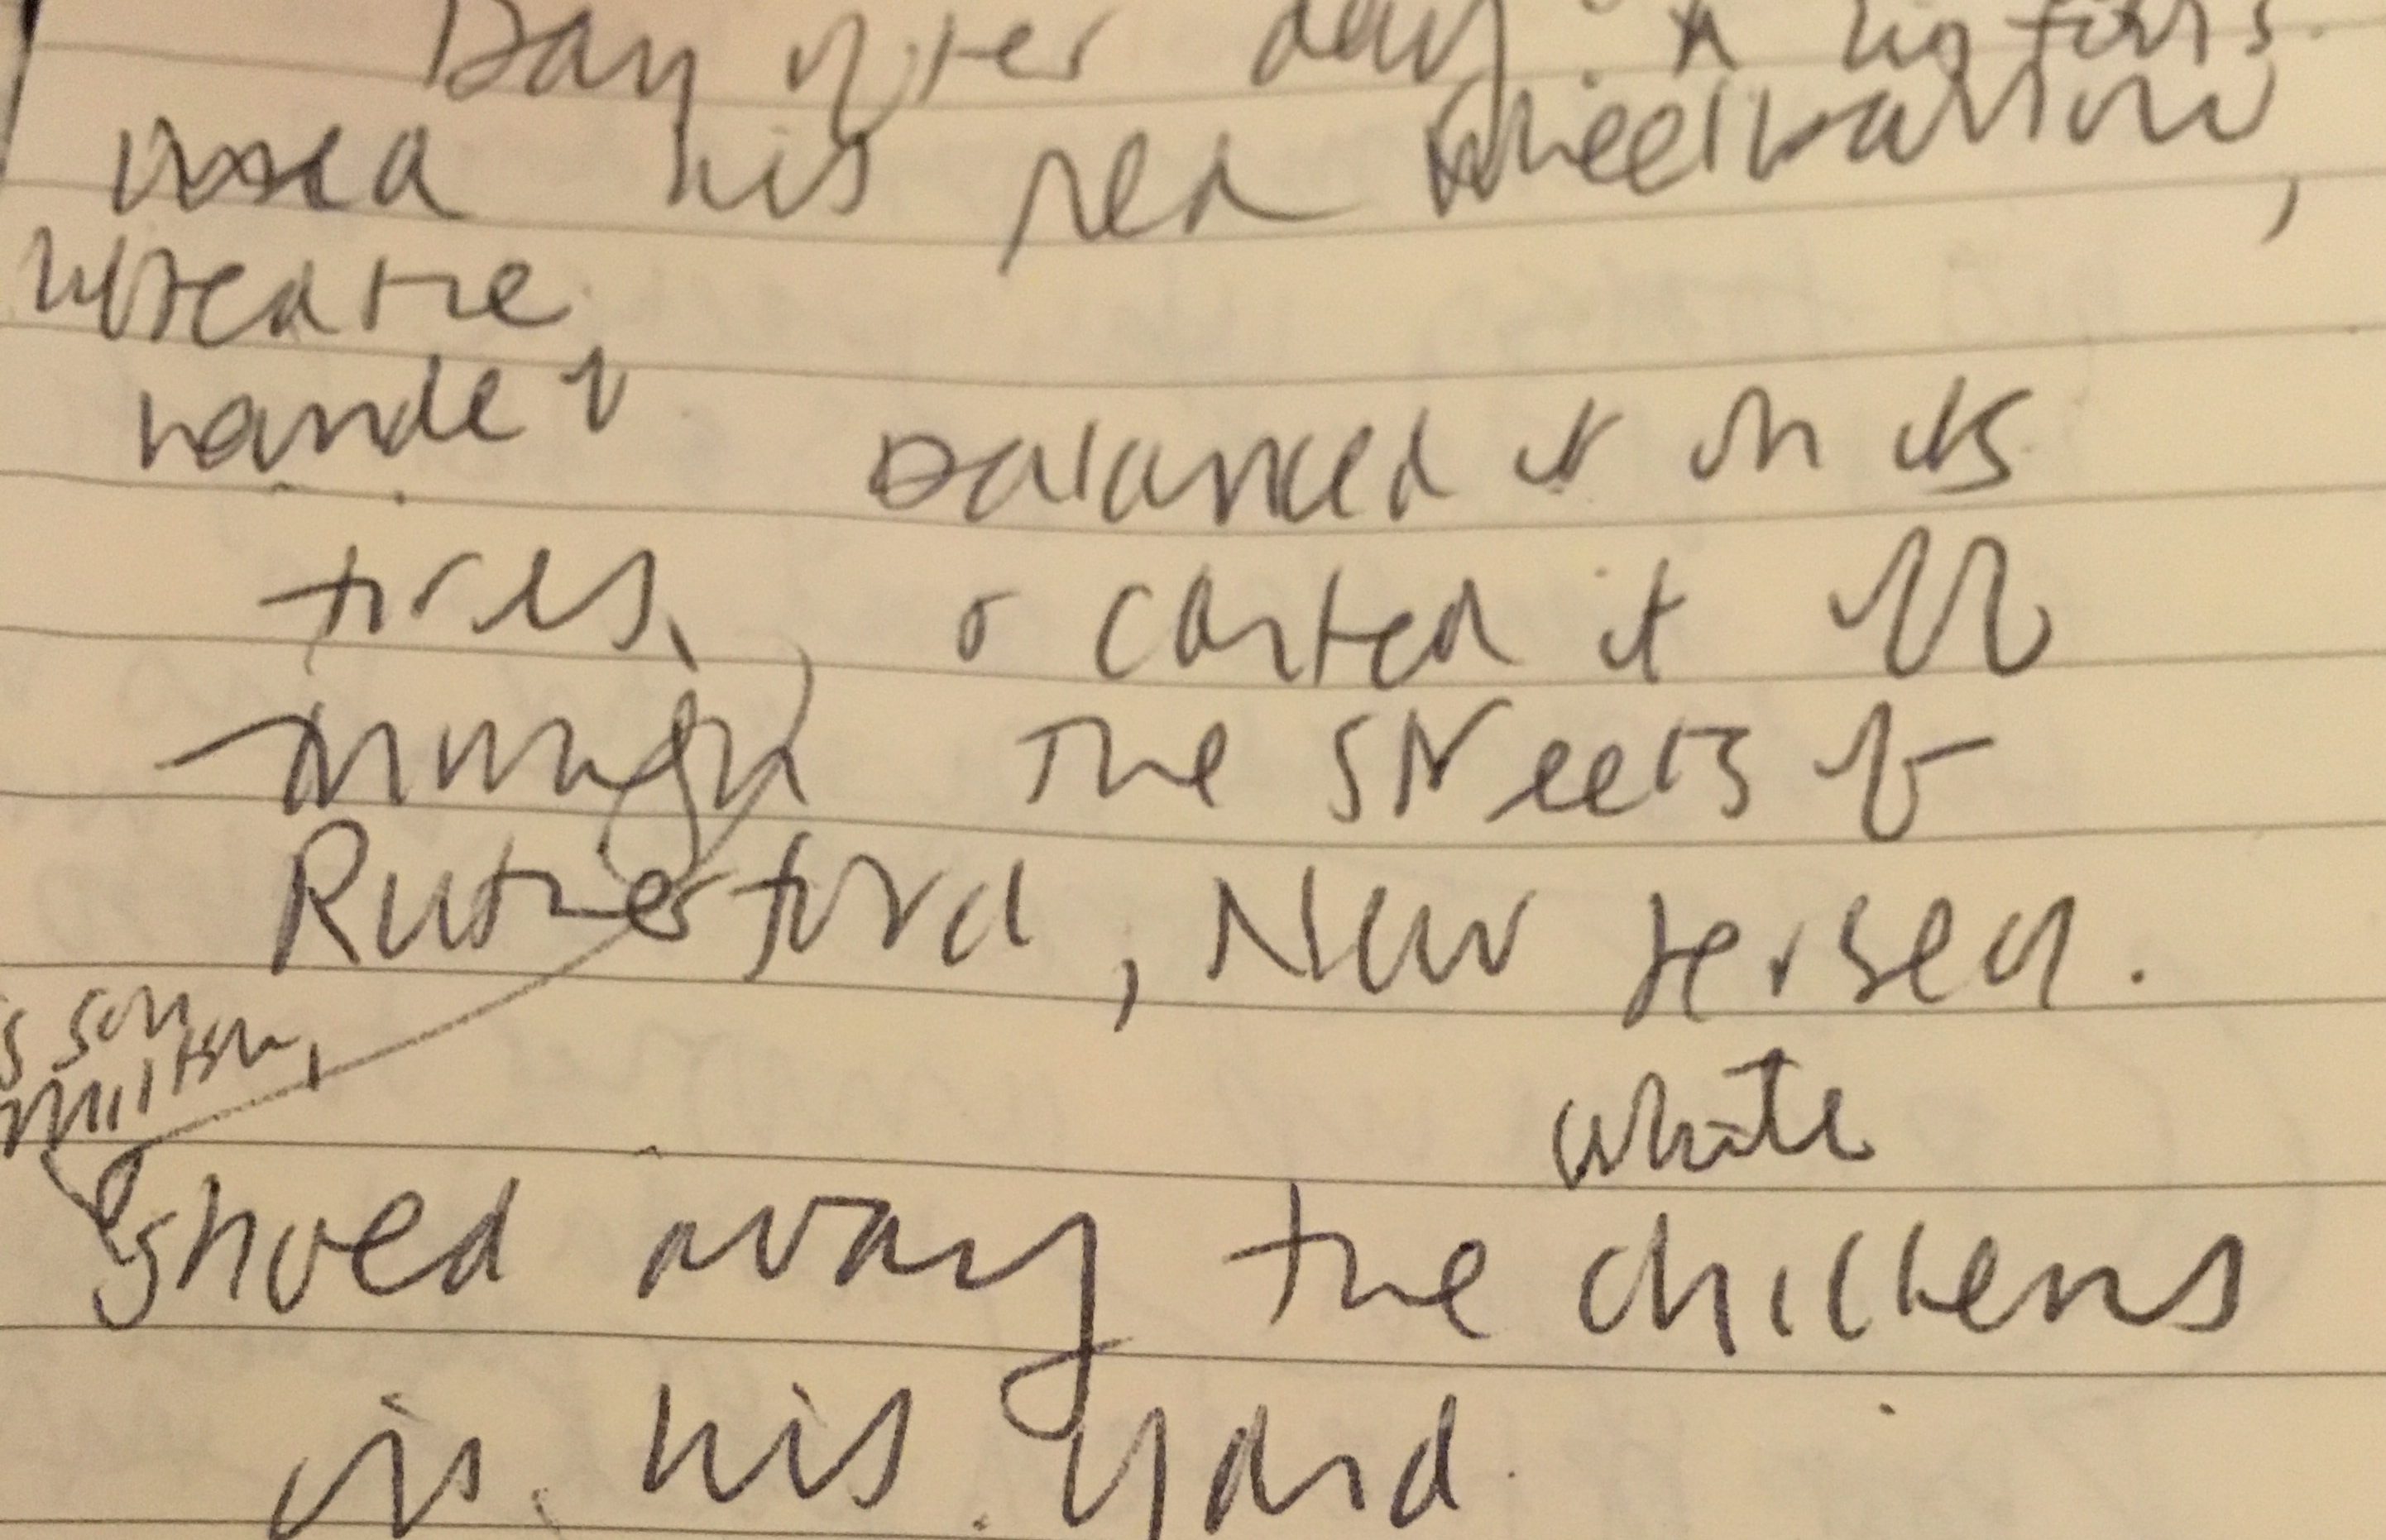 Day after day.
used his red wheelbarrow,
lifted the
handle &
balanced it on its
tires, & carted it off
through the streets of
Rutherford, New Jersey.
s son
Milton,
white
shoed away the chickens
in his yard